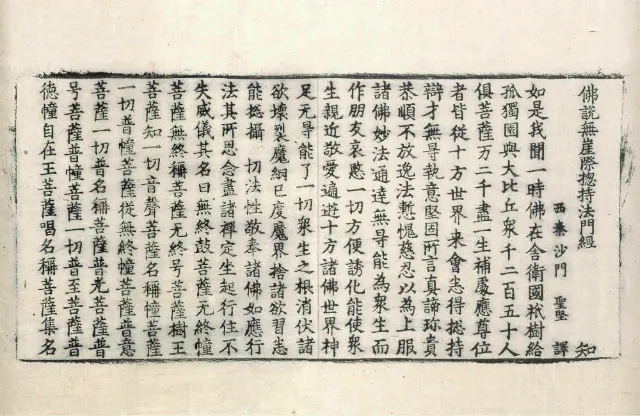 佛說無崖際揔持法門經 知
西秦沙門 聖堅 譯
如是我聞一時佛在舍衛國祇樹給
孤獨園與大比丘眾千二百五十人
俱菩薩万二千盡一生補處應尊位
者皆從十方世界来會悉得揔持
辯才無㝵執意堅固所言真諦珎貴
恭順不放逸法慙愧慈忍以為上服
諸佛妙法通達無㝵能為衆生而
作朋友哀愍一切方便誘化能使衆
生親近敬愛遍遊十方諸佛世界神
足无㝵能了一切衆生之根消伏諸
欲壞裂魔網已度魔界捨諸欲習悉
能揔攝一切法性敬奉諸佛如應行
法其所思念盡諸禪定坐起行住不
失威儀其名曰無終鼓菩薩无終幢
菩薩無終稱菩薩无終号菩薩樹王
菩薩知一切音聲菩薩名稱幢菩薩
一切普幢菩薩從無終幢菩薩普意
菩薩一切普名稱菩薩普光菩薩普
号菩薩普幢菩薩一切普至菩薩普
德幢自在王菩薩唱名稱菩薩集名